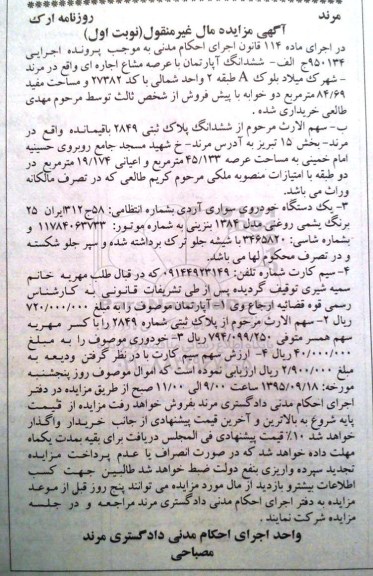 مرند روزنامه ارک
آگهی مزایده مال غیرمنقول(نوبت اول)
در اجرای ماده ۱۱۴ قانون اجرای احکام مدنی به موجب پرونده اجرایی
۹۵۰۱۳۴ج الف- ششدانگ آپارتمان با عرصه مشاع اجاره ای واقع در مرند
- شهرک میلاد بلوک A طبقه ۲ واحد شمالی با کد ۲۷۳۸۲ و مساحت مفید
۸۴/۶۹ مترمربع دو خوابه با پیش فروش از شخص ثالث توسط مرحوم مهدی
طالعی خریداری شده .
ب- سهم الارث مرحوم از ششدانگ پلاک ثبتی ۲۸۴۹ باقیمانده واقع در
مرند- بخش ۱۵ تبریز به آدرس مرند- خ شهید مسجد جامع روبروی حسینیه
امام خمینی به مساحت عرصه ۴۵/۱۳۳ مترمربع و اعیانی ۱۹/۱۷۴ مترمربع در
دو طبقه با امتیازات منصوبه ملکی مرحوم کریم طالعی که در تصرف مالکانه
وراث می باشد.
۳- یک دستگاه خودروی سواری آردی بشماره انتظامی: ۵۸ج۳۱۲ایران ۲۵
برنگ یشمی روغنی مدل ۱۳۸۴ بنزینی به شماره موتور: ۱۱۷۸۴۰۶۳۷۳۳ و
بشماره شاسی: ۳۴۶۵۸۲۰ با شیشه جلو ترک برداشته شده و سپر جلو شکسته
و در تصرف محکوم لها می باشد.
۴- سیم کارت شماره تلفن: ۰۹۱۴۴۹۲۳۱۴۹ که در قبال طلب مهریه خانم
سمیه شیری توقیف گردیده پس از طی تشریفات قانونی به کارشناس
رسمی قوه قضائیه ارجاع وی ۱- آپارتمان موصوف را به مبلغ ۷۲۰/۰۰۰/۰۰۰
ریال ۲- سهم الارث مرحوم از پلاک ثبتی شماره ۲۸۴۹ را با کسر مهریه
سهم همسر متوفی ۷۹۴/۰۹۹/۲۵۰ ریال ۳- خودروی موصوف را به مبلغ
۴۰/۰۰۰/۰۰۰ ریال ۴- ارزش سهم سیم کارت با در نظر گرفتن ودیعه به
مبلغ ۲/۹۰۰/۰۰۰ ریال ارزیابی نموده است که اموال موصوف روز پنجشنبه
مورخه: ۱۳۹۵/۰۹/۱۸ ساعت ۹/۰۰ الی ۱۱/۰۰ صبح از طریق مزایده در دفتر
اجرای احکام مدنی دادگستری مرند بفروش خواهد رفت مزایده از قیمت
پایه شروع به بالاترین و آخرین قیمت پیشنهادی از جانب خریدار واگذار
خواهد شد ۱۰٪ قیمت پیشنهادی فی المجلس دریافت برای بقیه بمدت یکماه
مهلت داده خواهد شد که در صورت انصراف یا عدم پرداخت مزایده
تجدید سپرده واریزی بنفع دولت ضبط خواهد شد طالبین جهت کسب
اطلاعات بیشترو بازدید از مال مورد مزایده می توانند پنج روز قبل از موعد
مزایده به دفتر اجرای احکام مدنی دادگستری مرند مراجعه و در جلسه
مزایده شرکت نمایند .
واحد اجرای احکام مدنی دادگستری مرند
مصباحی